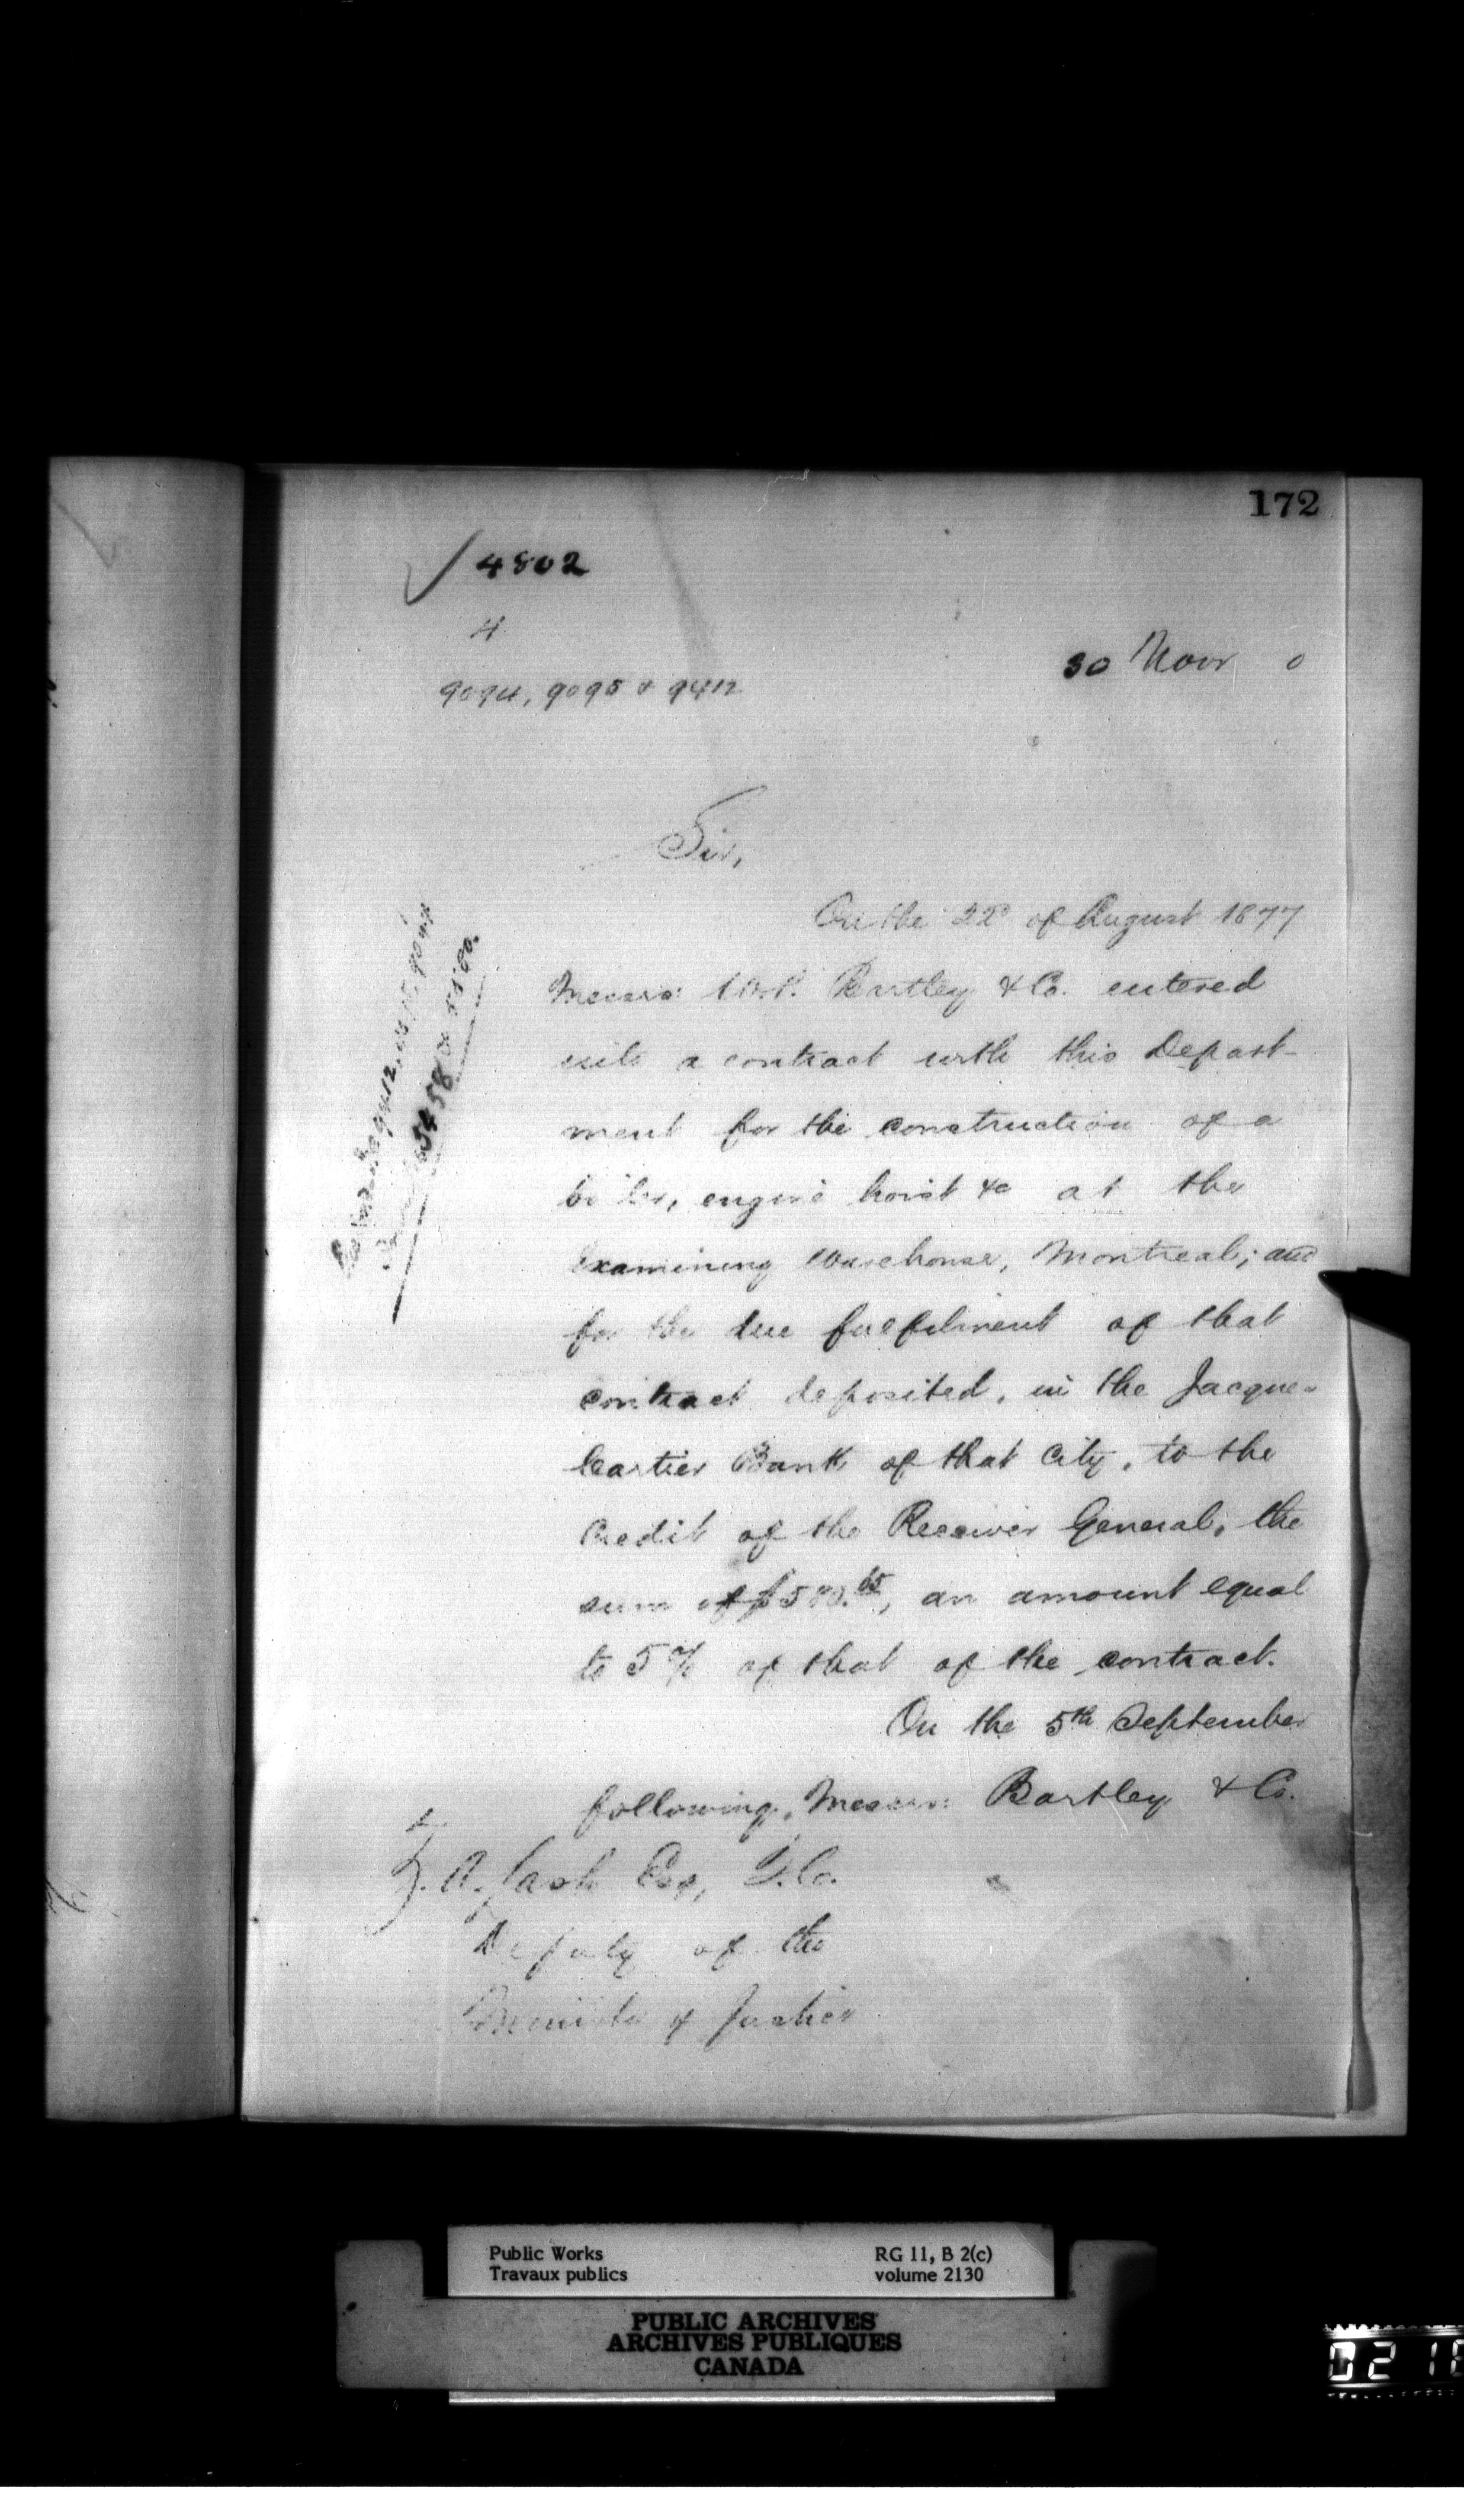 172
4802
H
9094, 9095 & 9412
30 Novr 0
Sir,
On the 22d of August 1877
Messrs: W.P. Bartley & Co. entered
into a contract with this Depart-
ment for the construction of a
boiler, engine hoist &c at the
Examining Warehouse, Montreal; and
for the due fulfilment of that
contract deposited, in the Jacques
Cartier Bank of that City, to the
Credit of the Receiver General, the
sum of $580.65, an amount equal
to 5% of that of the contract.
On the 5th September
following, Messrs: Bartley & Co.
Z. A. Lash Esq, Q.C.
Deputy of the
Minister of Justice
Public Works
Travaux publics
RG 11, B 2(c)
volume 2130
PUBLIC ARCHIVES
ARCHIVES PUBLIQUES
CANADA